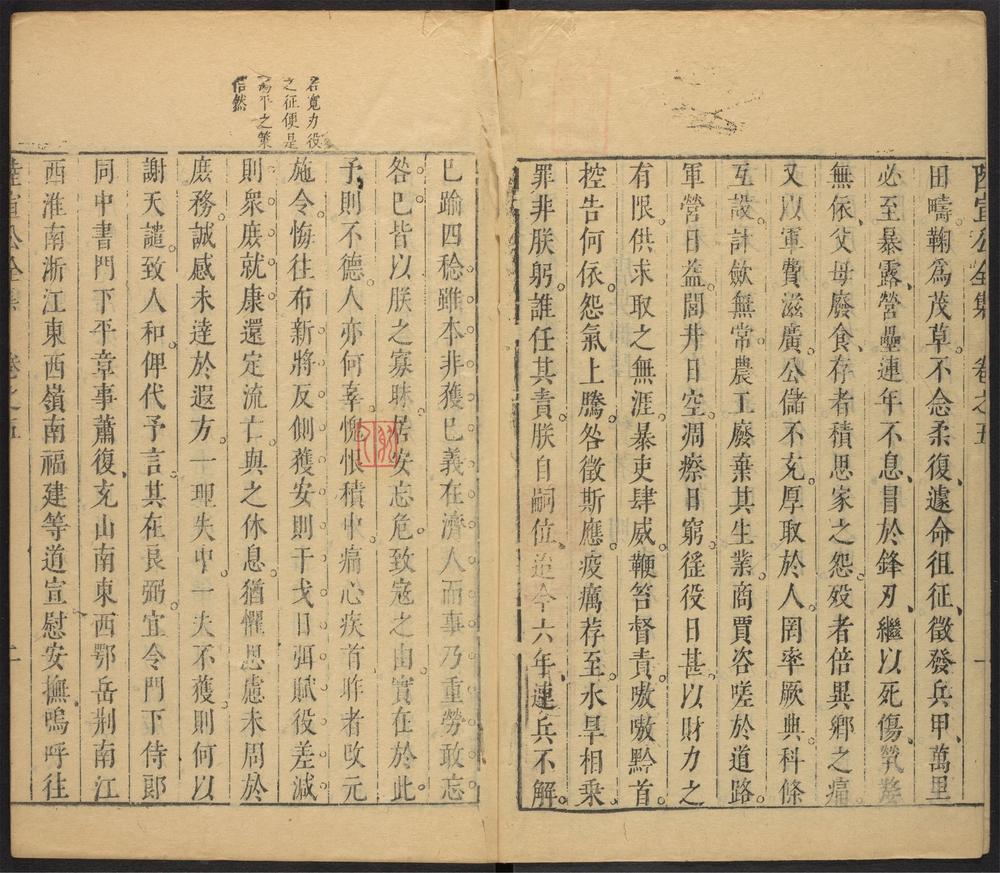 陸宣公全集 卷之五 一
田疇鞠爲茂草不念柔復遽命徂征徵發兵甲萬里
必至暴露營壘連年不息冒於鋒刃繼以死傷煢嫠
無依父母廢食存者積思家之怨歿者倍異鄉之痛
又以軍費滋廣公儲不充厚取於人罔率厥典科條
互設計斂無常農工廢棄其生業商賈咨嗟於道路
軍營日益閭井日空凋瘵日窮徭役日甚以財力之
有限供求取之無涯暴吏肆威鞭笞督責嗷嗷黔首
控告何依怨氣上騰咎徵斯應疫癘荐至水旱相乗
罪非朕躬誰任其責朕自嗣位迨今六年連兵不解
已踰四稔雖本非獲已義在濟人而事乃重勞敢忘
咎已皆以朕之寡昧居安忘危致寇之由實在於此
予則不德人亦何辜愧悵積中痛心疾首昨者改元
施令悔往布新將反側獲安則干戈日弭賦役差減
則衆庶就康還定流亡與之休息猶懼思慮未周於
庶務誠感未達於遐方一理失中一夫不獲則何以
謝天譴致人和俾代予言其在良弼宜令門下侍郎
同中書門下平章事蕭復充山南東西鄂岳荆南江
西淮南浙江東西嶺南福建等道宣慰安撫嗚呼往
陸宣公全集 卷之五 二
若寛力役
之征便是
平之策
信然